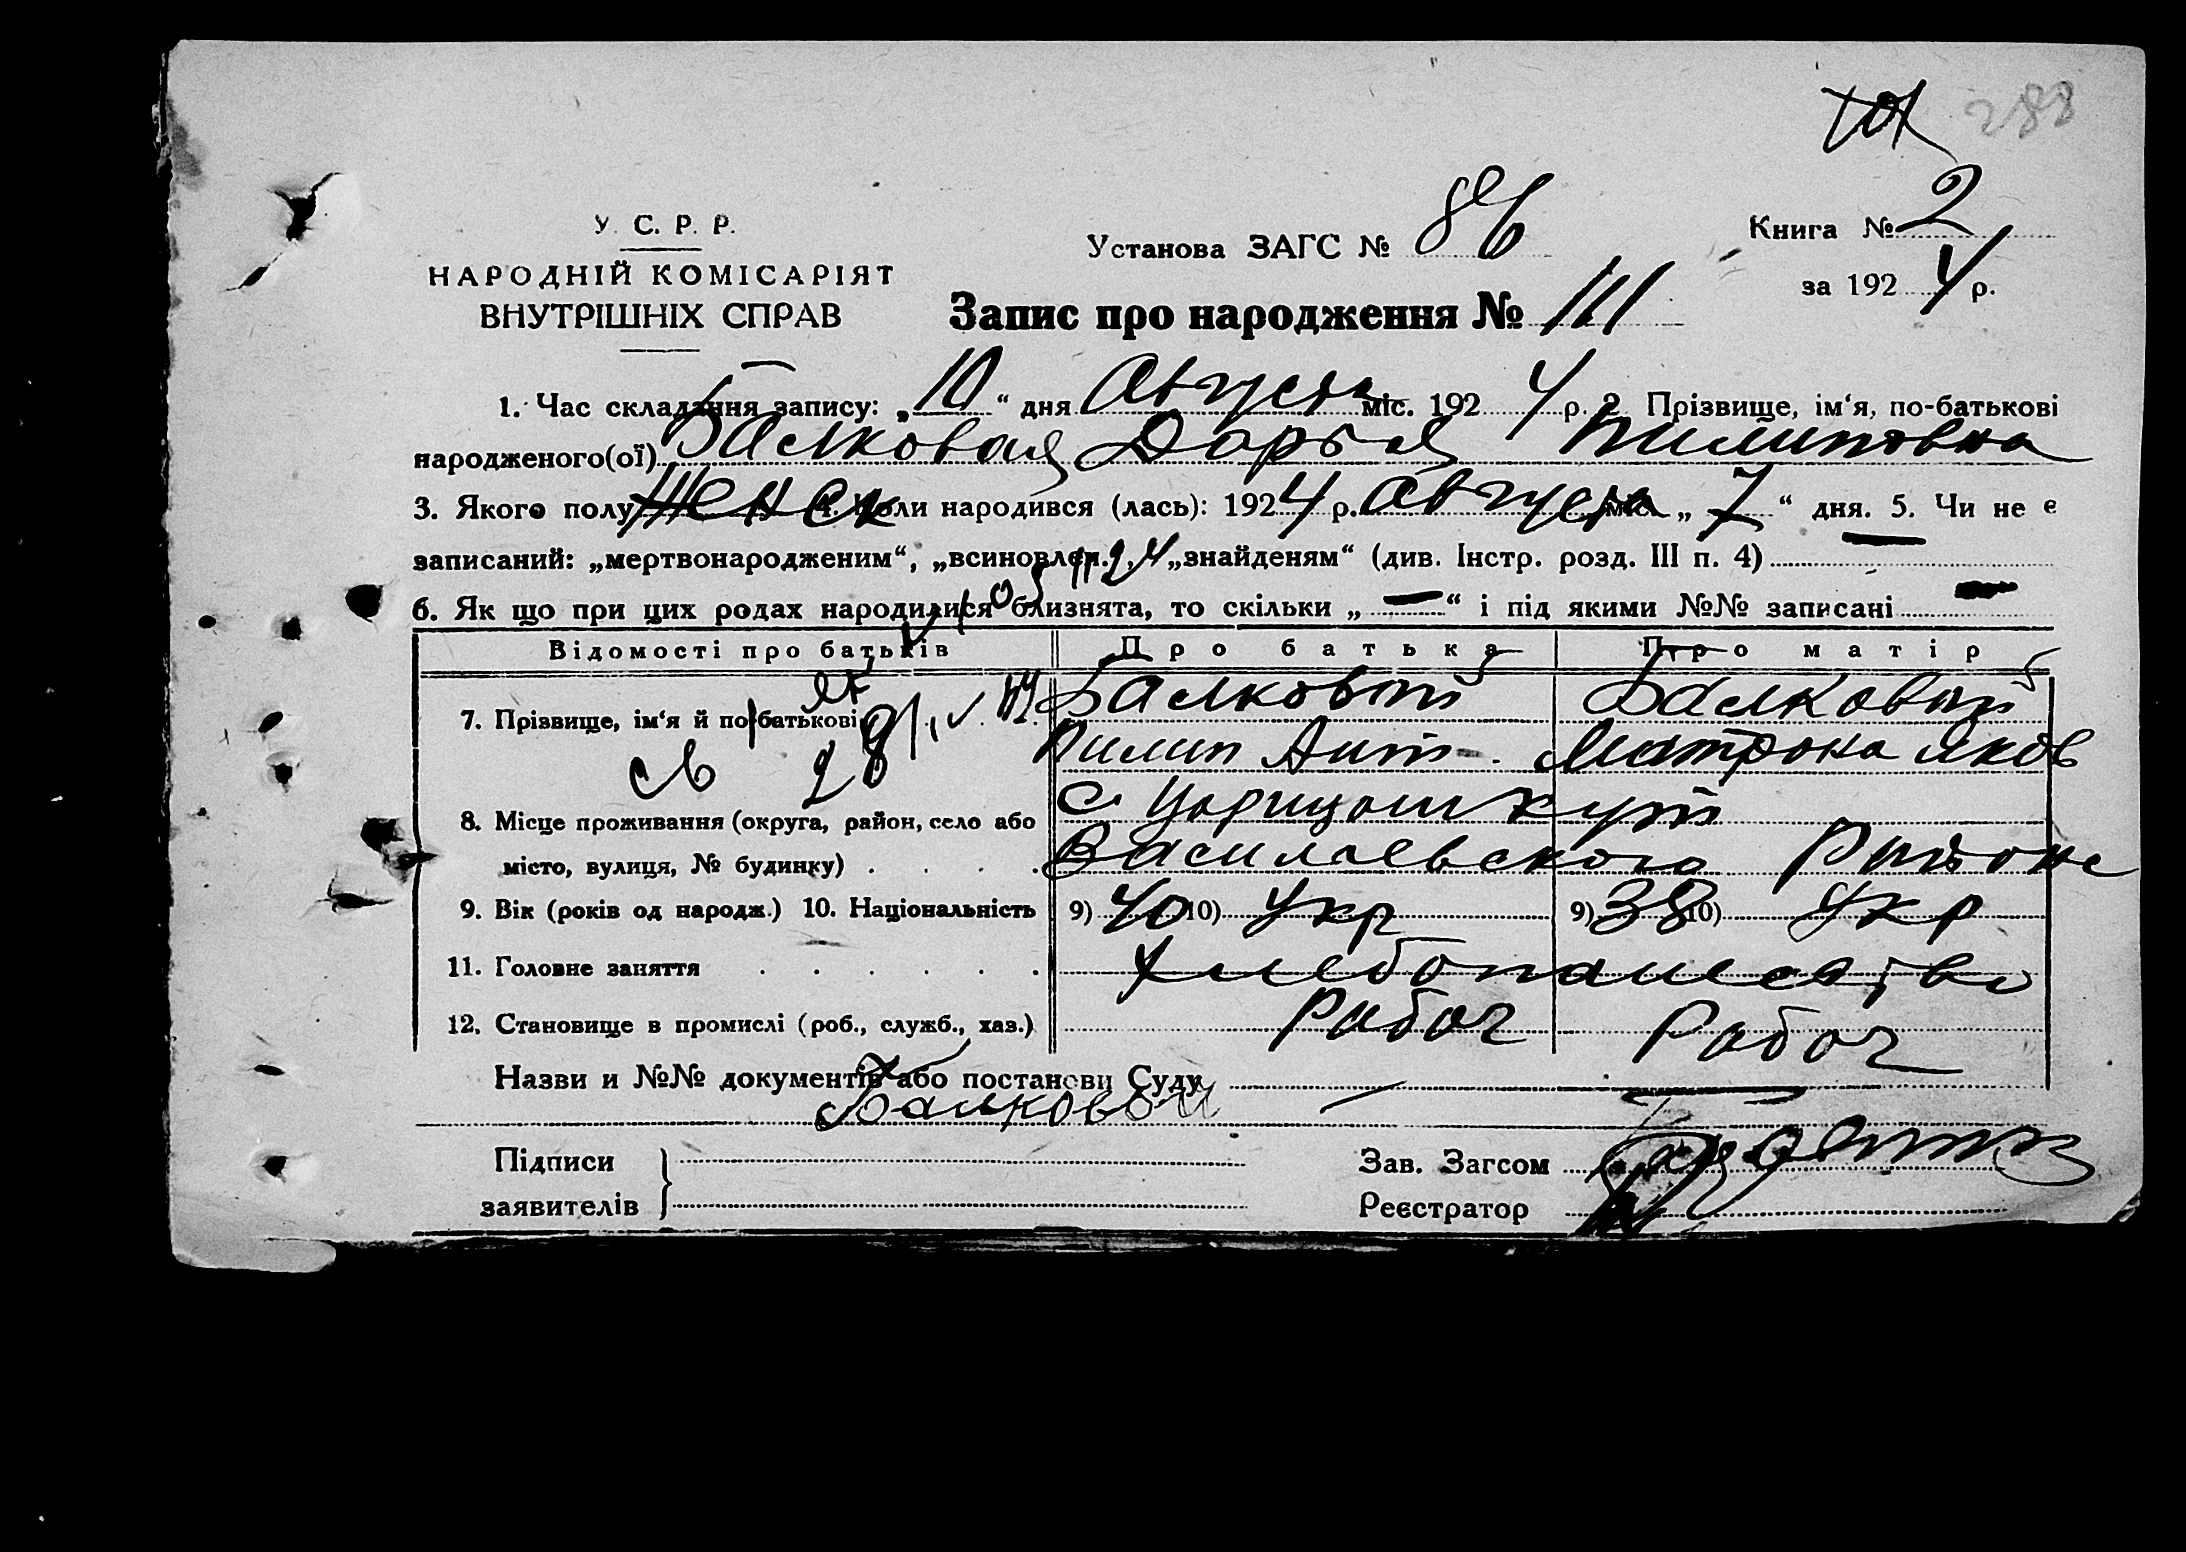 288
У. С. Р. Р.
НАРОДНІЙ КОМІСАРІЯТ
ВНУТРІШНІХ СПРАВ
Установа ЗАГС № 86
Книга № 2
за 1924 р.
Запис про народження № 111
1. Час складання запису: „10“ дня Августа міс. 1924 р. 2. Прізвище, ім‘я, по-батькові
народженого(ої) Балковая Дарья Пилиповна
3. Якого полу Женск 4. Коли народився (лась): 1924 р. Августа міс. „7“ дня. 5. Чи не є
записаний: „мертвонародженим“, „всиновлен.“, „знайденям“ (див. Інстр. розд. III п. 4) —
6. Як що при цих родах народилися близнята, то скільки „—“ і під якими №№ записані —
Відомості про батьків Про батька Про матір
7. Прізвище, ім‘я й по-батькові Балковой Балковой
Пилип Ант. Матрона Яков
св 28
8. Місце проживання (округа, район, село або с. Царицын кут
місто, вулиця, № будинку) . . . . Василаевского Района
9. Вік (років од народж.) 10. Національність 9) 40 10) Укр 9) 38 10) Укр
11. Головне заняття . . . . . . Хлебопашество
12. Становище в промислі (роб., служб., хаз.) Рабоч Рабоч
Назви и №№ документів або постанови Суду —
Балковой
Підписи
заявителів
Зав. Загсом
Реєстратор